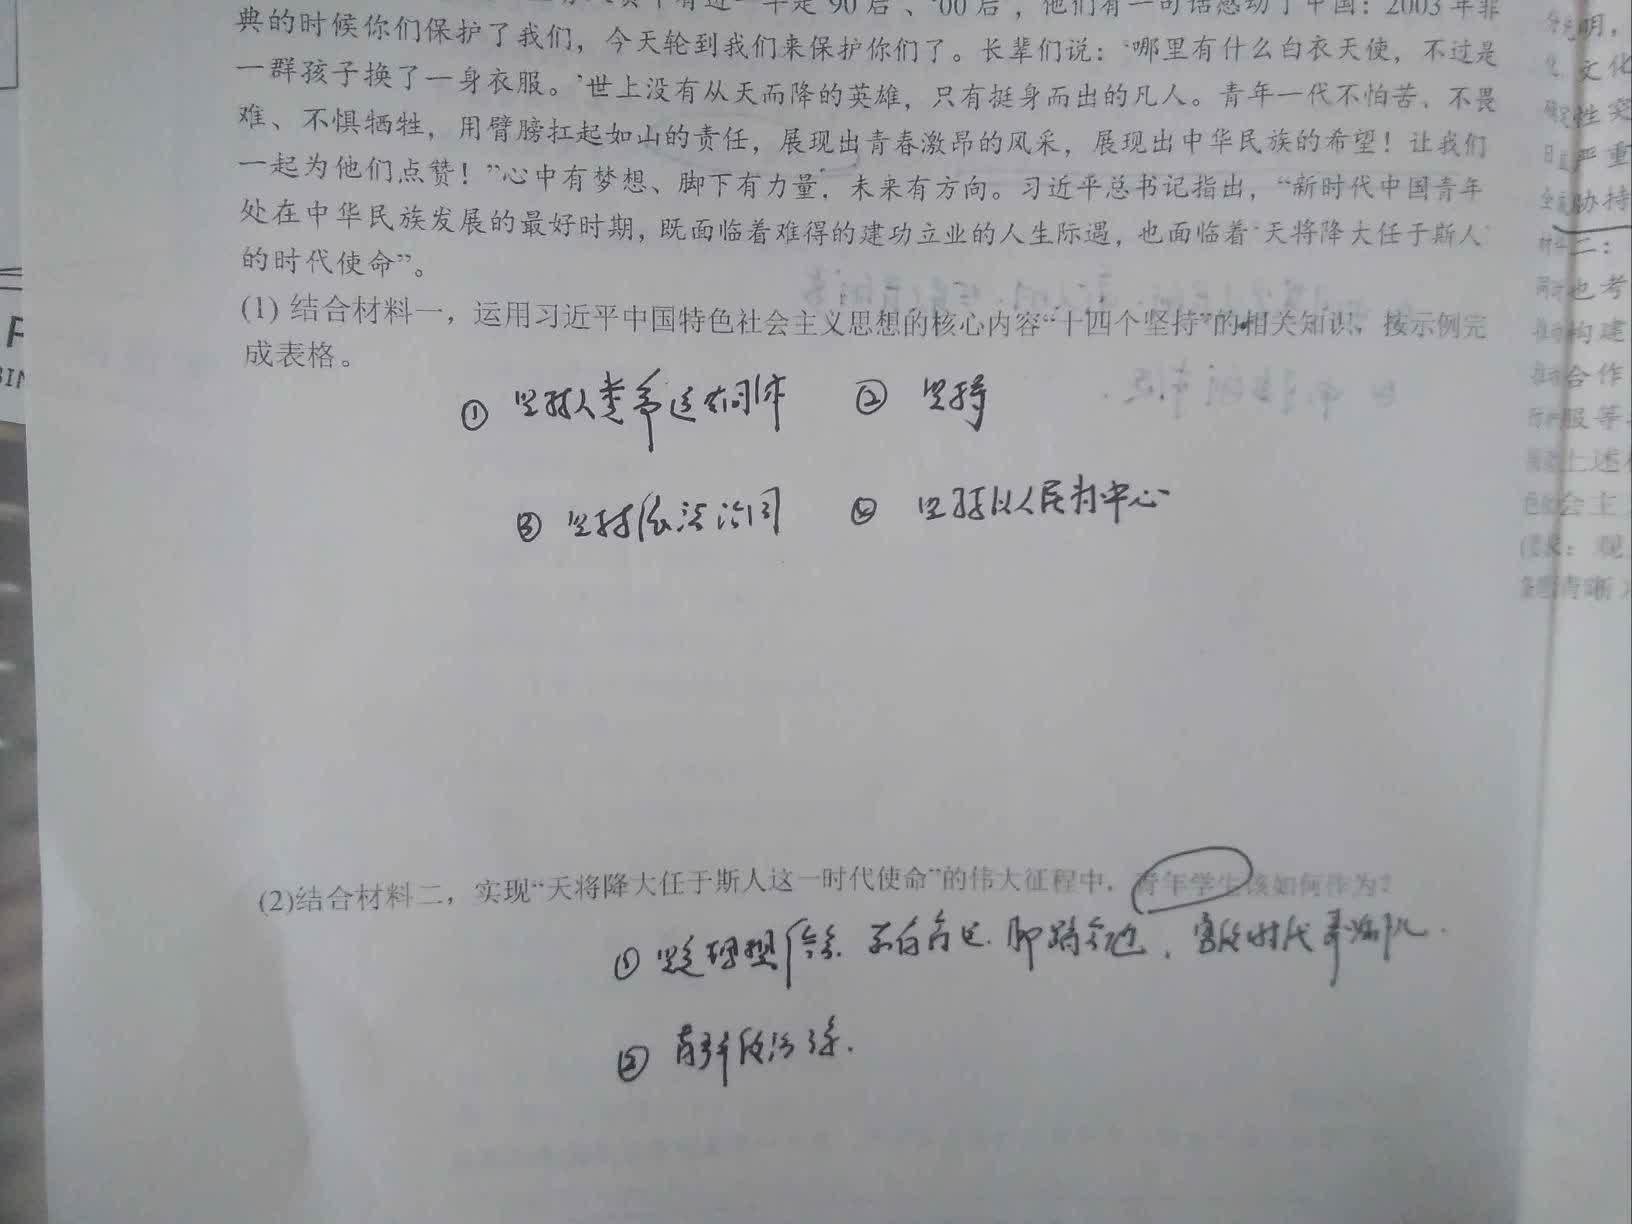 90后、'00后，他们有一句话感动了中国：2003年非
典的时候你们保护了我们，今天轮到我们来保护你们了。长辈们说：'哪里有什么白衣天使，不过是
一群孩子换了一身衣服。'世上没有从天而降的英雄，只有挺身而出的凡人。青年一代不怕苦、不畏
难、不惧牺牲，用臂膀扛起如山的责任，展现出青春激昂的风采，展现出中华民族的希望！让我们
一起为他们点赞！”心中有梦想、脚下有力量，未来有方向。习近平总书记指出，“新时代中国青年
处在中华民族发展的最好时期，既面临着难得的建功立业的人生际遇，也面临着'天将降大任于斯人'
的时代使命”。
(1) 结合材料一，运用习近平中国特色社会主义思想的核心内容“十四个坚持”的相关知识，按示例完
成表格。
① 坚持人类命运共同体 ② 坚持
③ 坚持依法治国 ④ 坚持以人民为中心
(2)结合材料二，实现“天将降大任于斯人这一时代使命”的伟大征程中，青年学生该如何作为？
① 坚定理想信念 志存高远 脚踏实地，勇做时代弄潮儿.
②
明，
文化
性突
严重
协持
二：
也考
构建
合作
服等
上述
会主
：观
清晰